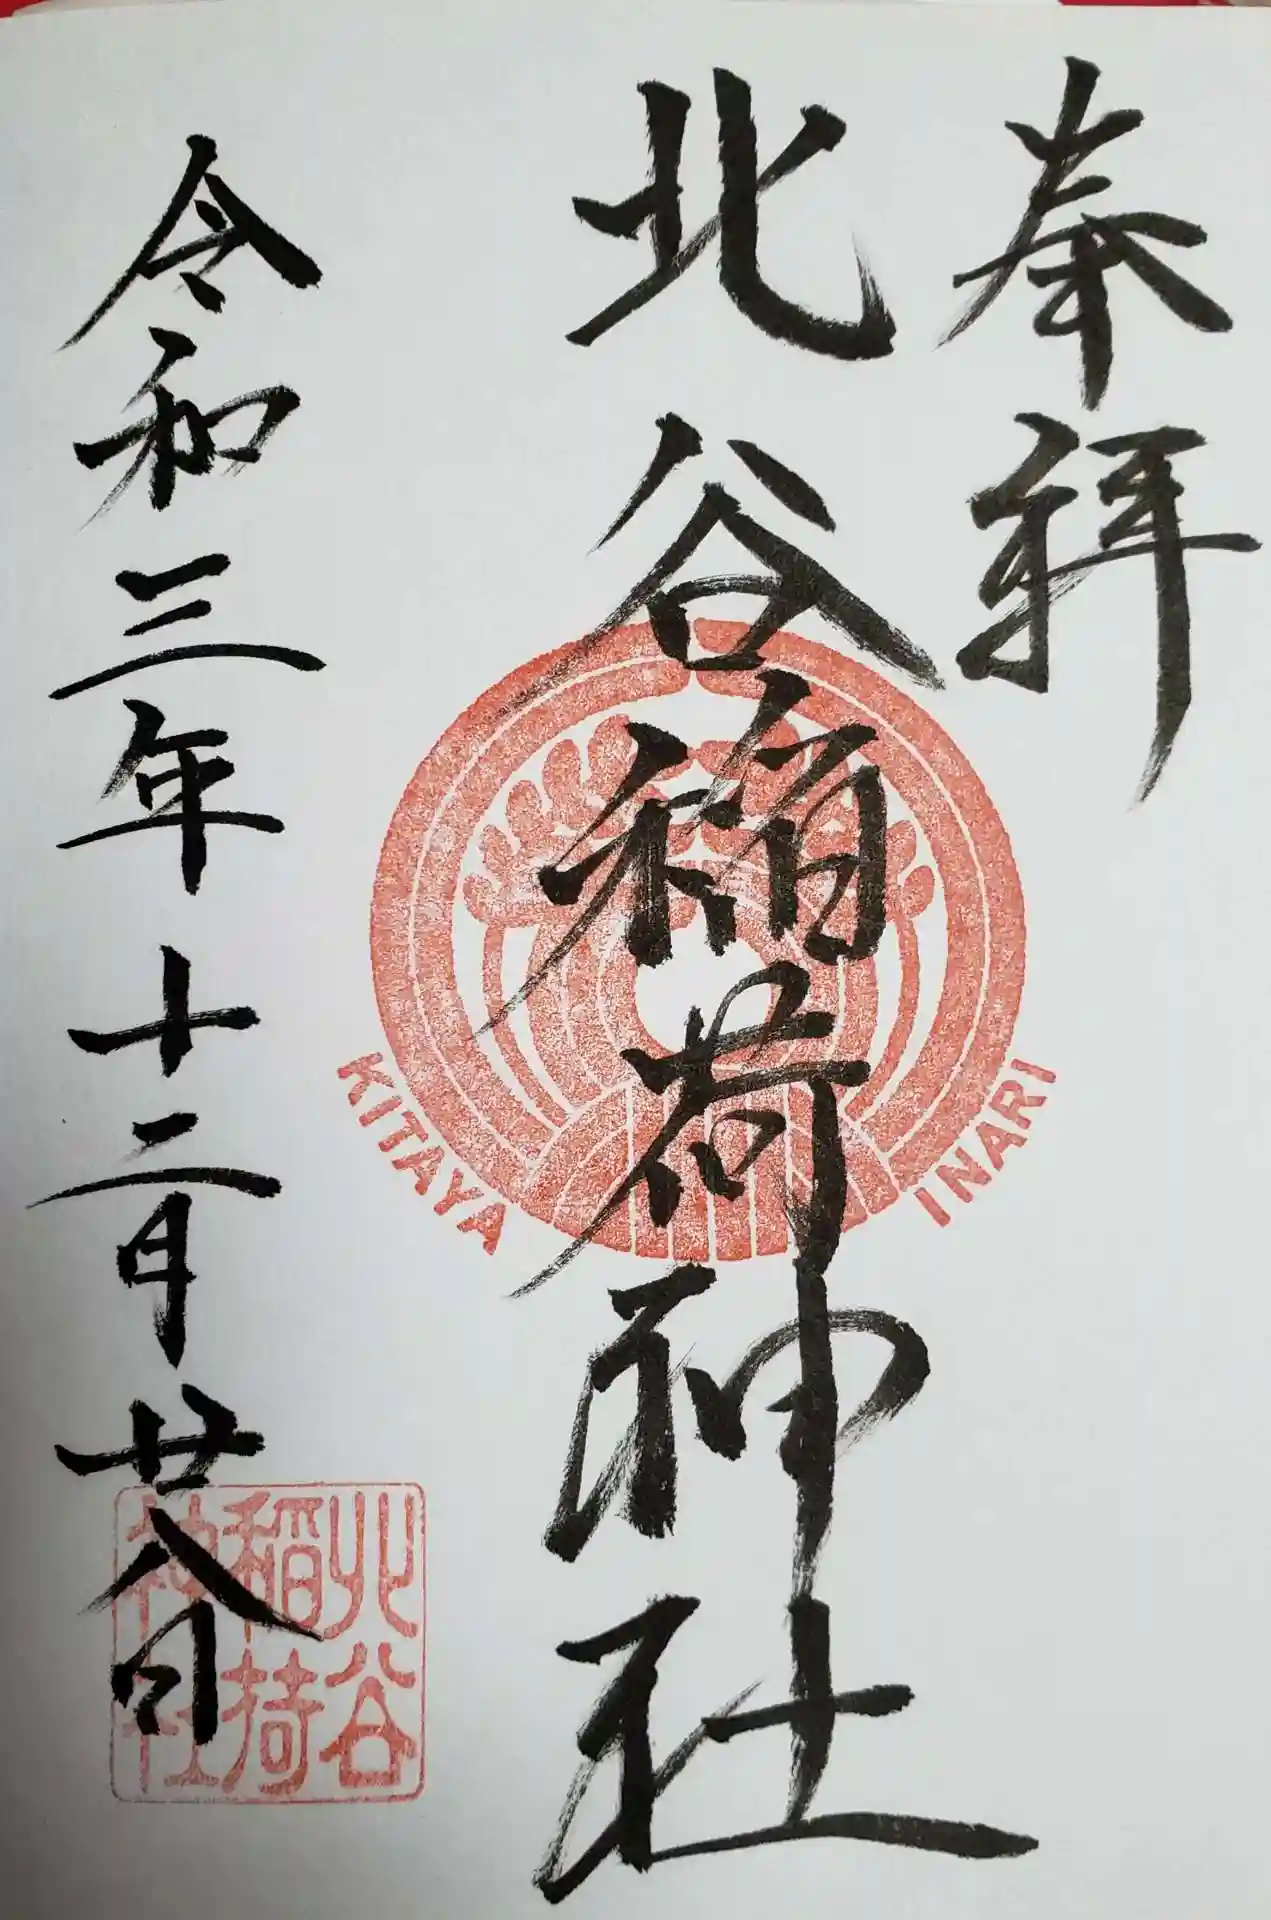 奉拝
北谷稲荷神社
KITAYA INARI
令和三年十二月廿八日
北谷
稲荷
神社